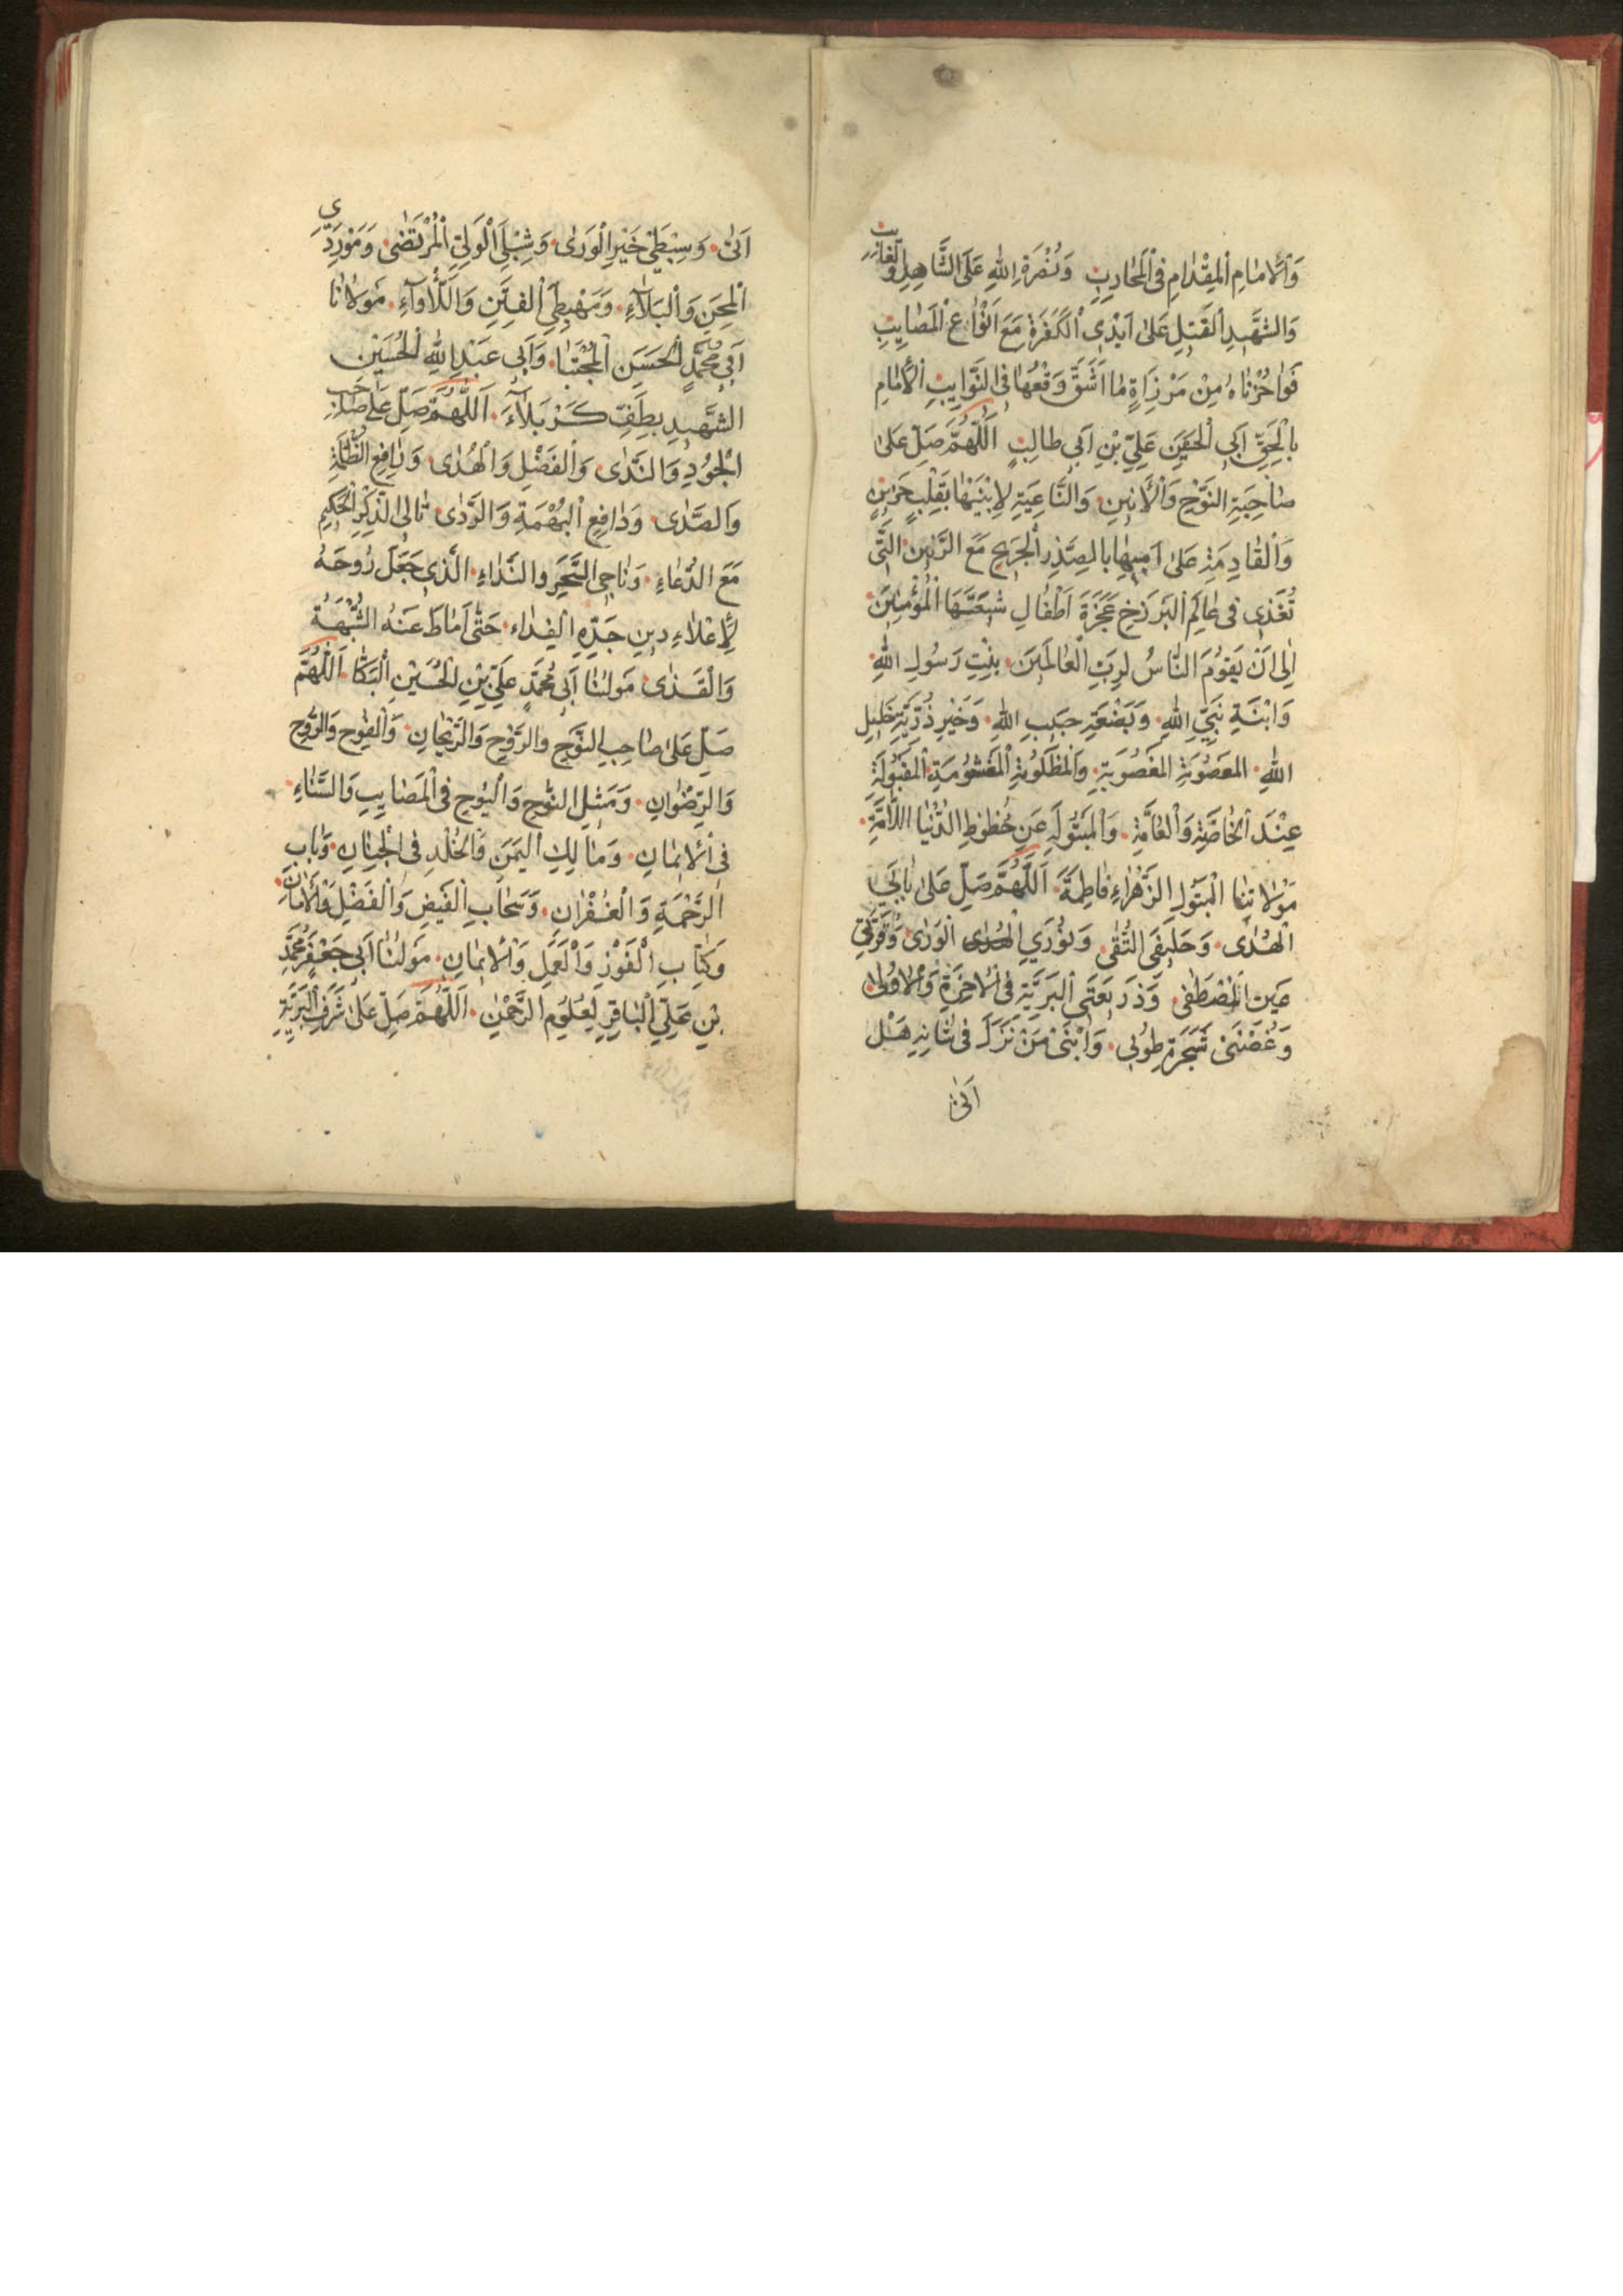 وَالْاِمَامِ الْمِقْدَامِ فِى الْمَحَارِيبِ وَنُصْرَةِ اللهِ عَلَى الشَّاهِدِ وَالْغَائِبِ
وَالشَّهِيدِ الْقَتِيلِ عَلىٰ اَيْدِى الْكَفَرَةِ مَعَ اَنْوَاعِ الْمَصَايِبِ
فَوَاحُزْنَاهُ مِنْ مَرْزِاَةٍ مٰا اَشَقَّ وَقْعُهٰا فِى النَّوَايِبِ الْاِمَامِ
بِالْحَقِّ اَبِى الْحَسَنِ عَلِيِّ بْنِ اَبِى طالِبٍ اَللّٰهُمَّ صَلِّ عَلىٰ
صٰاحِبَةِ النَّوْحِ وَالْاَنِينِ وَالنَّاعِيَةِ لِابْنَيْهَا بِقَلْبٍ حَزِينٍ
وَالْقَادِمَةِ عَلىٰ اَبِيهَا بِالصَّدْرِ الْجَرِيحِ مَعَ الرَّنِينِ الَّتِى
تُغَذِى فِى عَالَمِ الْبَرْزَخِ عَجَزَةَ اَطْفَالِ شِيعَتِهَا الْمُؤْمِنِينَ
اِلىٰ اَنْ يَقُومَ النَّاسُ لِرَبِّ الْعَالَمِينَ بِنْتِ رَسُولِ اللهِ
وَابْنَةِ نَبِيِّ اللهِ وَبَضْعَةِ حَبِيبِ اللهِ وَخَيْرِ ذُرِّيَّةِ خَلِيلِ
اللهِ الْمَعْصُومَةِ الْمَغْصُوبَةِ وَالْمَظْلُومَةِ الْمَغْشُومَةِ الْمَقْبُولَةِ
عِنْدَ الْخَاصَّةِ وَالْعَامَّةِ وَالْمَبْتُولَةِ عَنْ حُظُوظِ الدُّنْيَا اللَّامَّةِ
مَوْلَاتِنَا الْبَتُولِ الزَّهْرَاءِ فَاطِمَةَ اَللّٰهُمَّ صَلِّ عَلىٰ بَابَيِ
الْهُدىٰ وَحَلِيفَىِ التُّقىٰ وَنُورَيِ الْوَرىٰ وَقُرَّتَىْ
عَيْنِ الْمُصْطَفىٰ وَذَرِيعَتَىِ الْبَرِيَّةِ فِى الْاٰخِرَةِ وَالْاُولىٰ
وَغُصْنَىْ شَجَرَةِ طُوبىٰ وَابْنَىْ مَنْ نَزَلَ فِى شَانِهِ هَلْ
اَتىٰ
اَتىٰ وَسِبْطَىْ خَيْرِ الْوَرىٰ وَشِبْلَىِ الْوَلِيِّ الْمُرْتَضىٰ وَمَوْرِدَىِ
الْمِحَنِ وَالْبَلَاءِ وَمَهْبِطَىِ الْفِتَنِ وَاللَّاْوَاءِ مَوْلَانَا
اَبِى مُحَمَّدٍ الْحَسَنِ الْمُجْتَبٰا وَاَبِى عَبْدِ اللهِ الْحُسَيْنِ
الشَّهِيدِ بِطَفِّ كَرْبَلَاءَ اَللّٰهُمَّ صَلِّ عَلىٰ صَاحِبِ
الْجُودِ وَالنَّدىٰ وَالْفَضْلِ وَالْهُدىٰ وَنَافِعِ الظَّمَاِ
وَالصَّدىٰ وَدَافِعِ الْبُهْمَةِ وَالرَّدىٰ تَالِى الذِّكْرِ الْحَكِيمِ
مَعَ الدُّعَاءِ وَنَاجِى السَّحَرِ وَالنِّدَاءِ الَّذِى جَعَلَ رُوحَهُ
لِاِعْلَاءِ دِينِ جَدِّهِ الْفِدَاءَ حَتّٰى اَمَاطَ عَنْهُ الشُّبْهَةَ
وَالْقَذىٰ مَولٰنٰا اَبِى مُحَمَّدٍ عَلِيِّ بْنِ الْحُسَيْنِ الْبَكَّا اَللّٰهُمَّ
صَلِّ عَلىٰ صَاحِبِ النَّوْحِ وَالرَّوْحِ وَالرَّيْحَانِ وَالْفَوْحِ وَالرُّوحِ
وَالرِّضْوَانِ وَمَثِيلِ النُّوحِ وَالْيُوحِ فِى الْمَصَايِبِ وَالسَّنَاءِ
فِى الْاِيمَانِ وَمٰالِكِ الْيُمْنِ وَالْخُلْدِ فِى الْجِنَانِ وَبَابِ
الرَّحْمَةِ وَالْغُفْرَانِ وَسَحَابِ الْفَيْضِ وَالْفَضْلِ وَالْاَمَانِ
وَكِتَابِ الْفَوْزِ وَالْعَمَلِ وَالْاِيمَانِ مَولٰنٰا اَبِى جَعْفَرٍ مُحَمَّدِ
بْنِ عَلِيِّ الْبَاقِرِ لِعُلُومِ الرَّحْمٰنِ اَللّٰهُمَّ صَلِّ عَلىٰ شَرَفِ الْبَرِيَّةِ